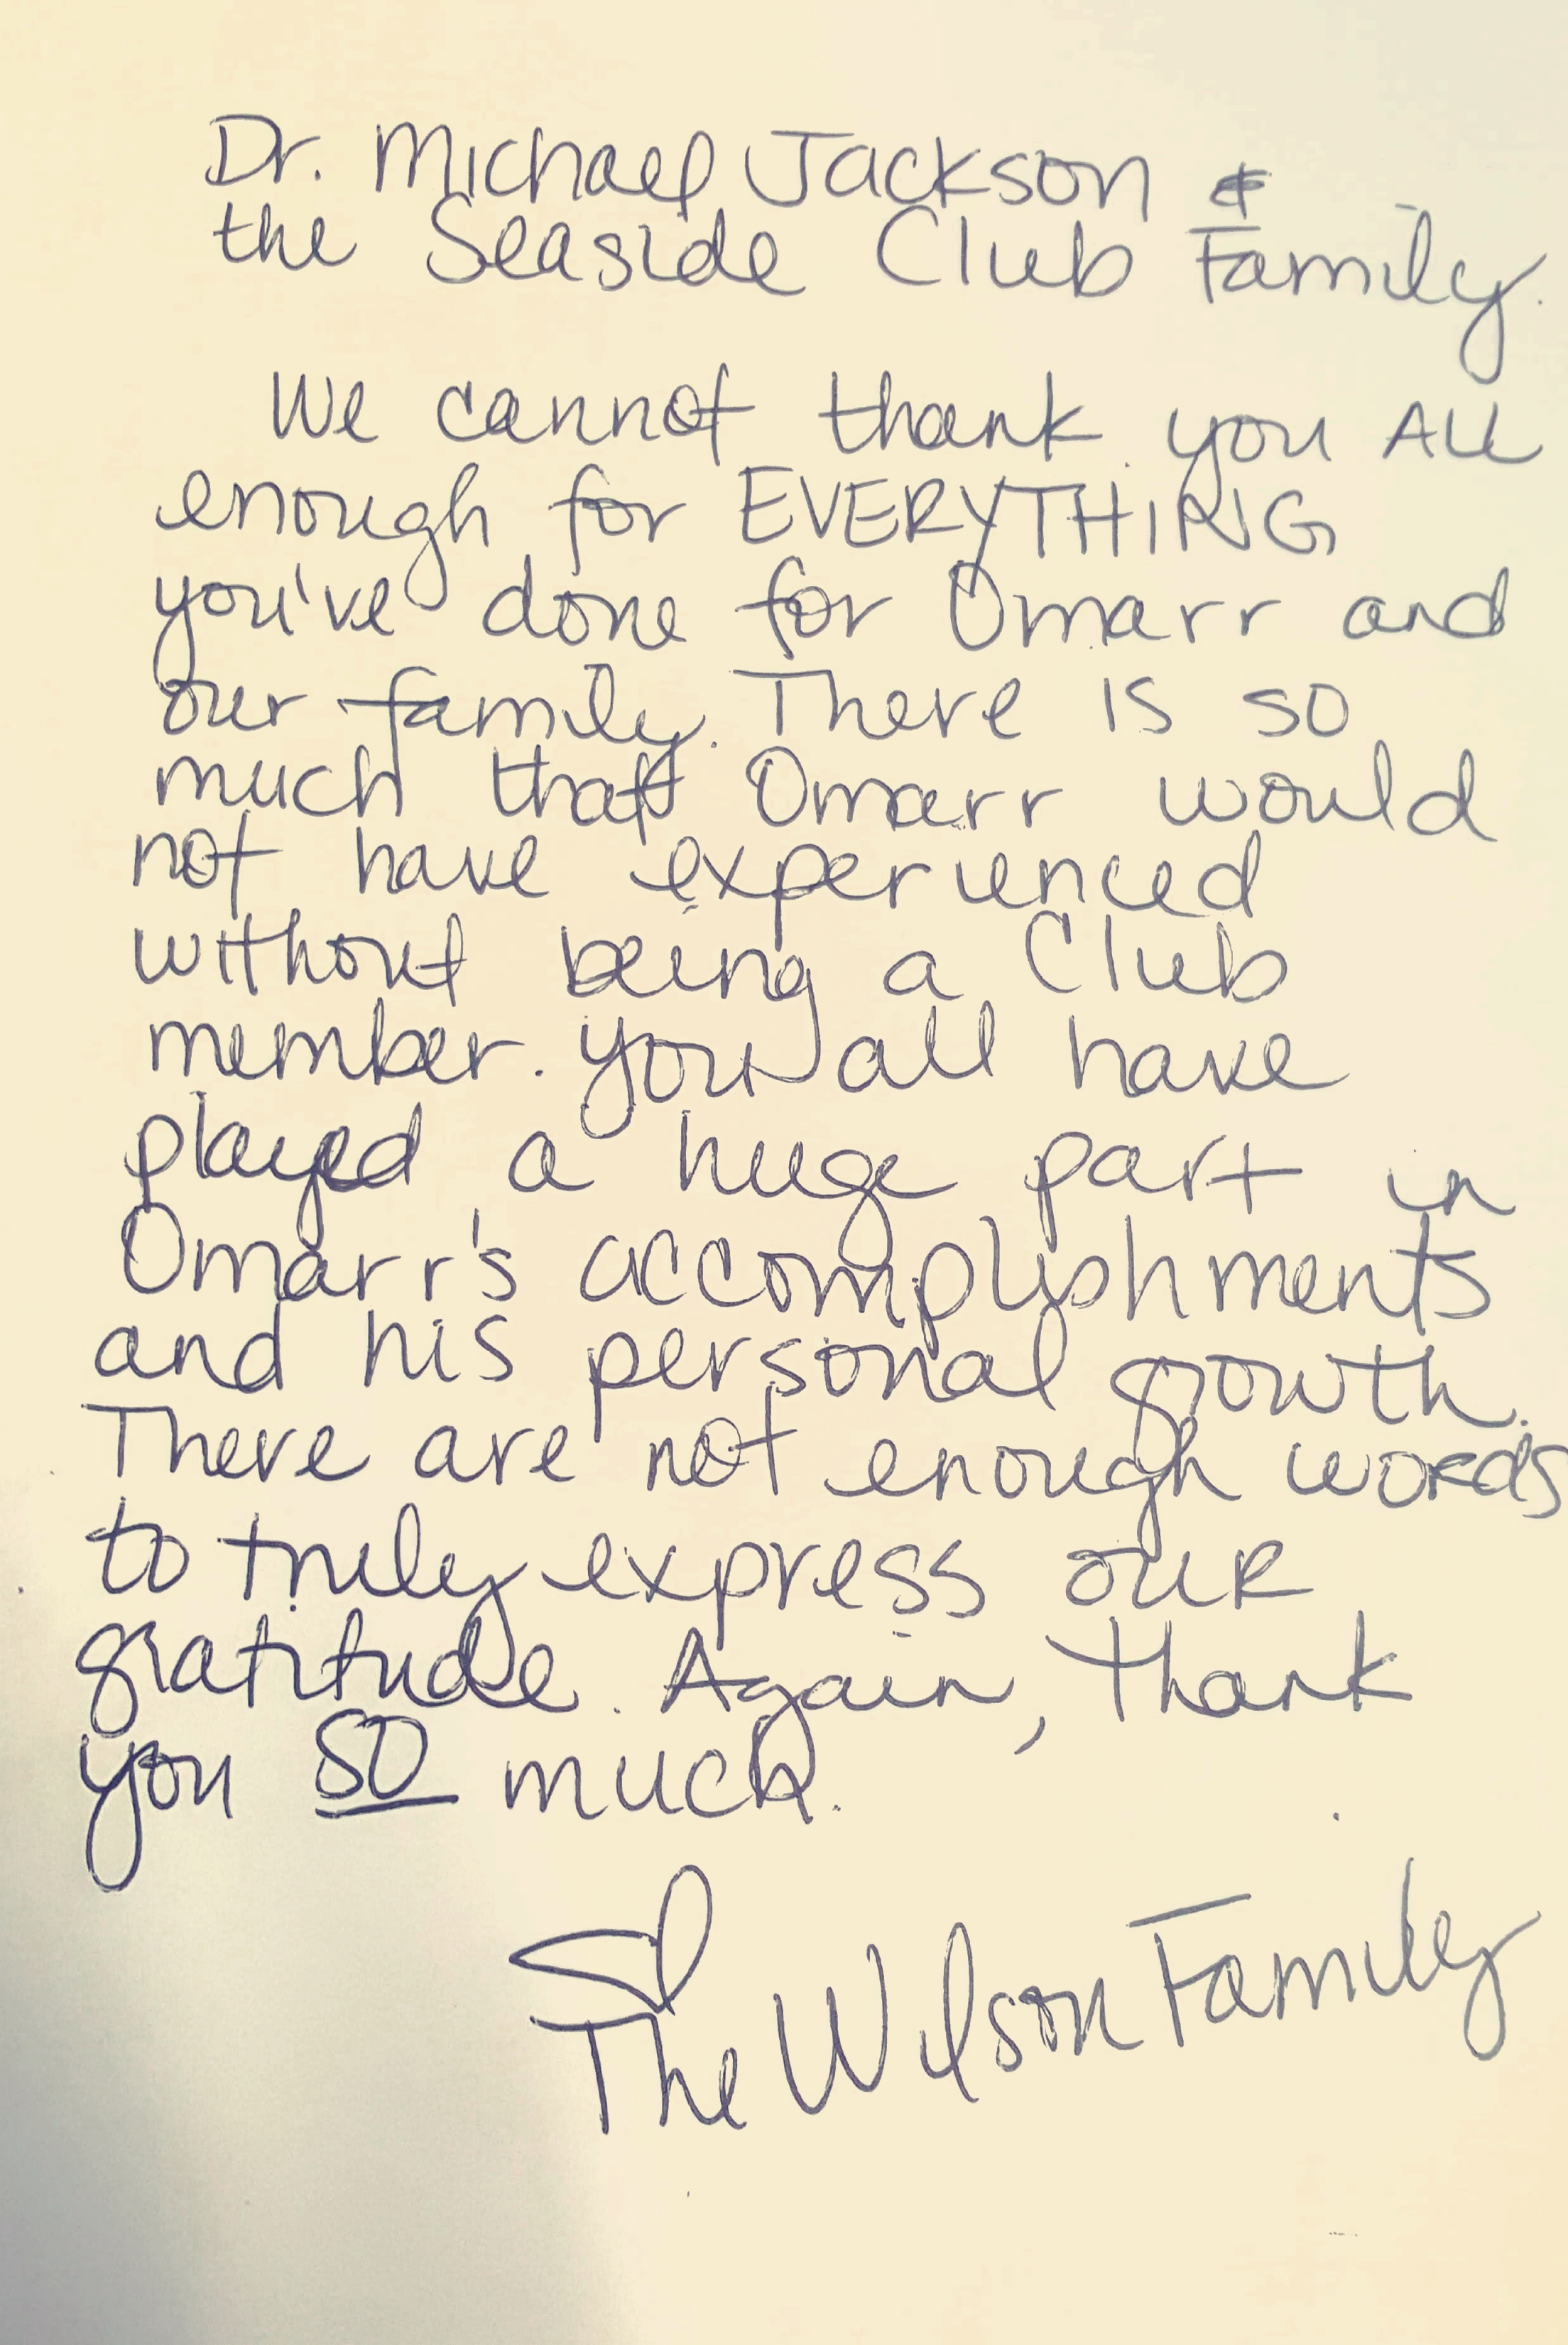 Dr. Michael Jackson &
the Seaside Club Family.
We cannot thank you All
enough for EVERYTHING
you've done for Omarr and
our family. There is so
much that Omarr would
not have experienced
without being a Club
member. You all have
played a huge part in
Omarr's accomplishments
and his personal growth.
There are not enough words
to truly express our
gratitude. Again, thank
you SO much.
The Wilson Family